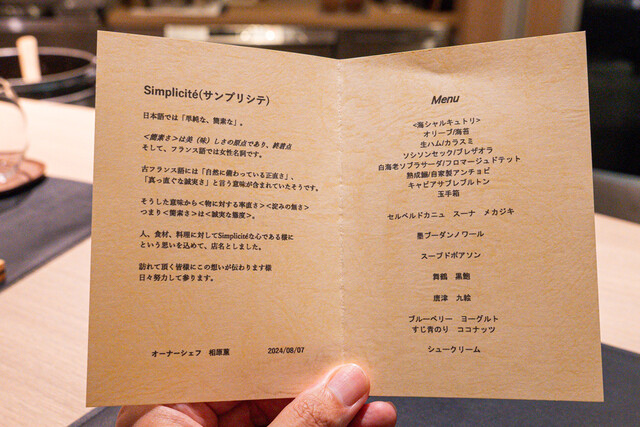 Simplicité(サンプリシテ)
日本語では「単純な、簡素な」。
<簡素さ>は美（味）しさの原点であり、終着点
そして、フランス語では女性名詞です。
古フランス語には「自然に備わっている正直さ」、
「真っ直ぐな誠実さ」と言う意味が含まれていたそうです。
そうした意味から<物に対する率直さ><淀みの無さ>
つまり<簡素さ>は<誠実な態度>。
人、食材、料理に対してSimplicitéな心である様に
という思いを込めて、店名としました。
訪れて頂く皆様にこの想いが伝わります様
日々努力して参ります。
オーナーシェフ 相原薫 2024/08/07
Menu
<海シャルキュトリ>
オリーブ/海苔
生ハム/カラスミ
ソシソンセック/ブレザオラ
白海老ソブラサーダ/フロマージュドテット
熟成鰯/自家製アンチョビ
キャビアサブレブルトン
玉手箱
セルベルドカニュ スーナ メカジキ
墨ブーダンノワール
スープドポアソン
舞鶴 黒鮑
唐津 九絵
ブルーベリー ヨーグルト
すじ青のり ココナッツ
シュークリーム